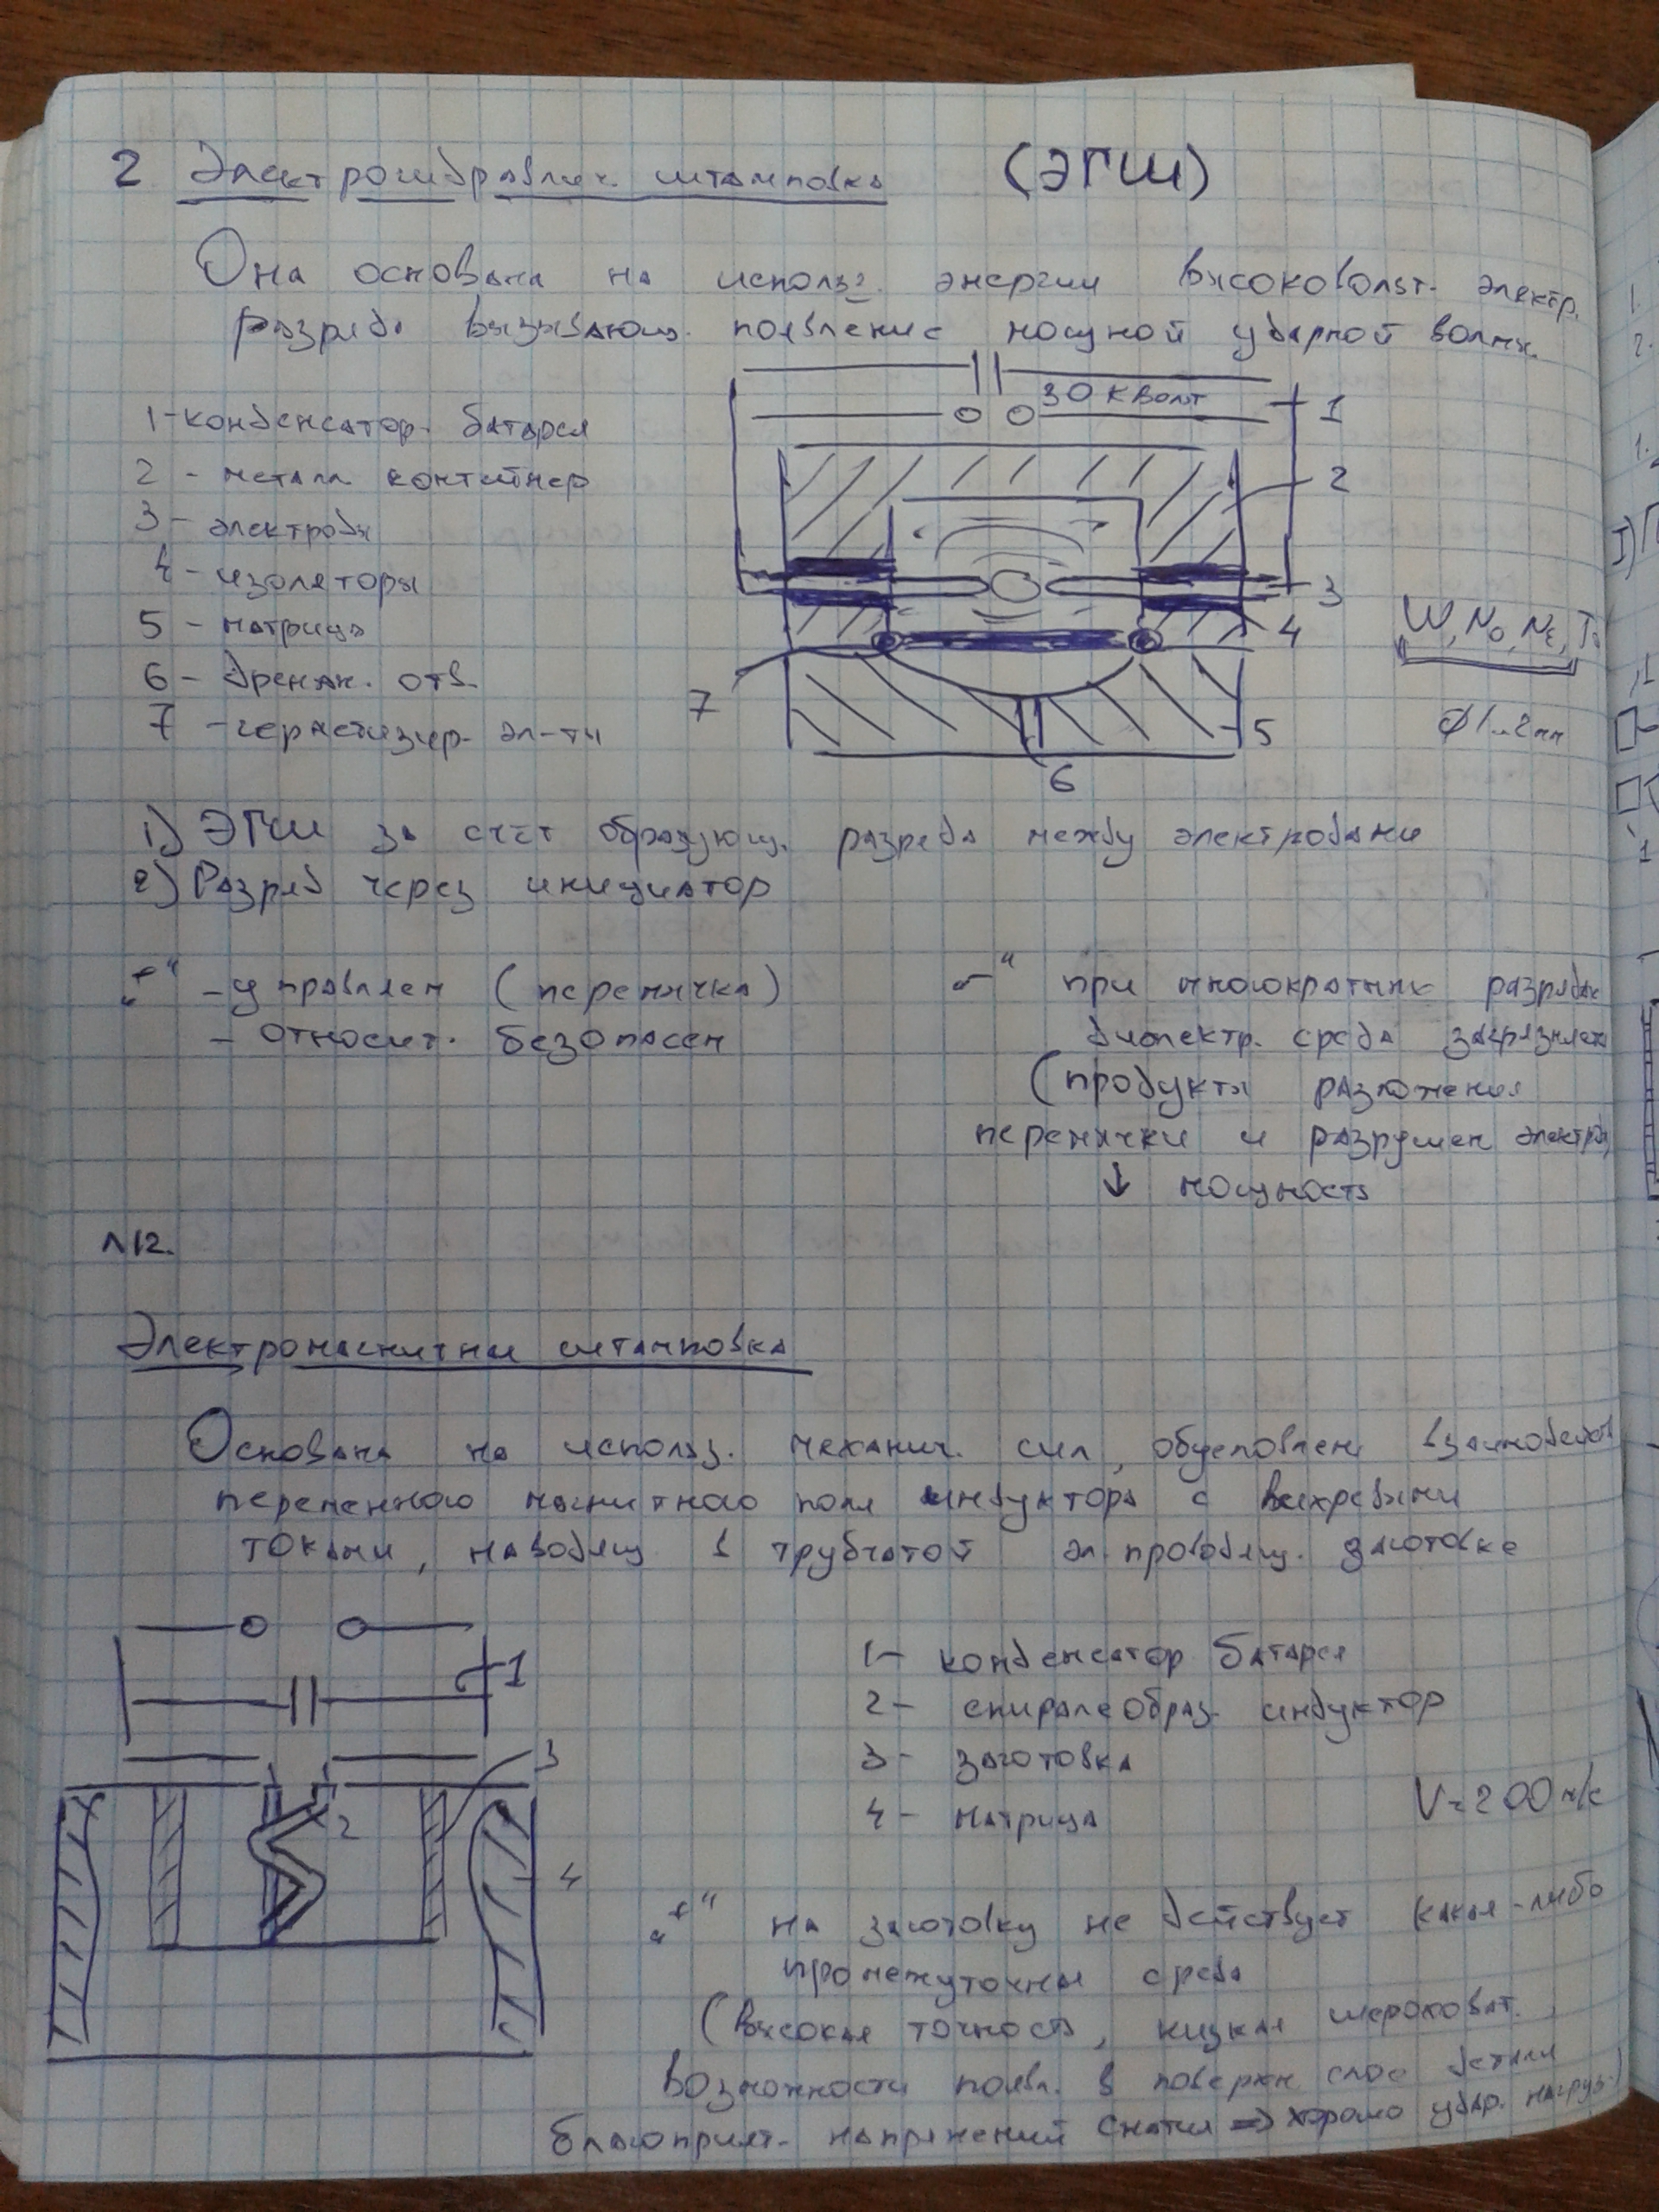 2 Электрогидравлич. штамповка (ЭГШ)
Она основана на использ. энергии высоковольт. электр.
разряда вызывающ. появление мощной ударной волны.
30 кВольт
1
1-конденсатор. батарея
2 - металл. контейнер
2
3 - электроды
4 - изоляторы
3
5 - матрица
4
W, No, Ni, Ti
6 - дренаж. отв.
7
7 - герметизир. эл-ты
5
Ø1..2мм
6
1) ЭГШ за счёт образующ. разряда между электродами
2) Разряд через инициатор
„+“ - управляем (перемычка)
- относит. безопасен
„-“ при многократных разрядах
диэлектр. среда загрязняется
(продукты разложения
перемычки и разрушен электрод)
↓ мощность
Л12.
Электромагнитная штамповка
Основана на использ. механич. сил, обусловлен взаимодейств
переменного магнитного поля индуктора с вихревыми
токами, наводящ в трубчатой эл. проводящ. заготовке
1
1- конденсатор батарея
2- спиралеобраз. индуктор
3
3- заготовка
V=200м/с
4- матрица
2
4
„+“ на заготовку не действует какая-либо
промежуточная среда
(высокая точность, низкая шероховат.
Возможности появл. в поверхн слое детали
благоприят. напряжений сжатия => хорошо удар. нагруз.)